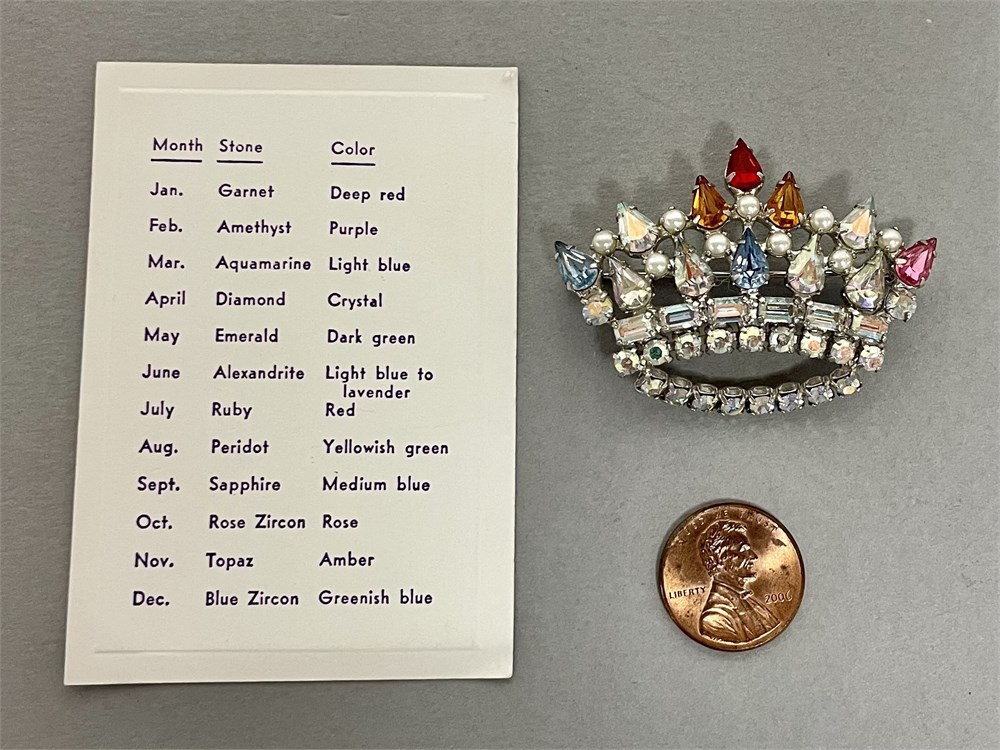 Month Stone Color
Jan. Garnet Deep red
Feb. Amethyst Purple
Mar. Aquamarine Light blue
April Diamond Crystal
May Emerald Dark green
June Alexandrite Light blue to
lavender
July Ruby Red
Aug. Peridot Yellowish green
Sept. Sapphire Medium blue
Oct. Rose Zircon Rose
Nov. Topaz Amber
Dec. Blue Zircon Greenish blue
WE TRUST
LIBERTY